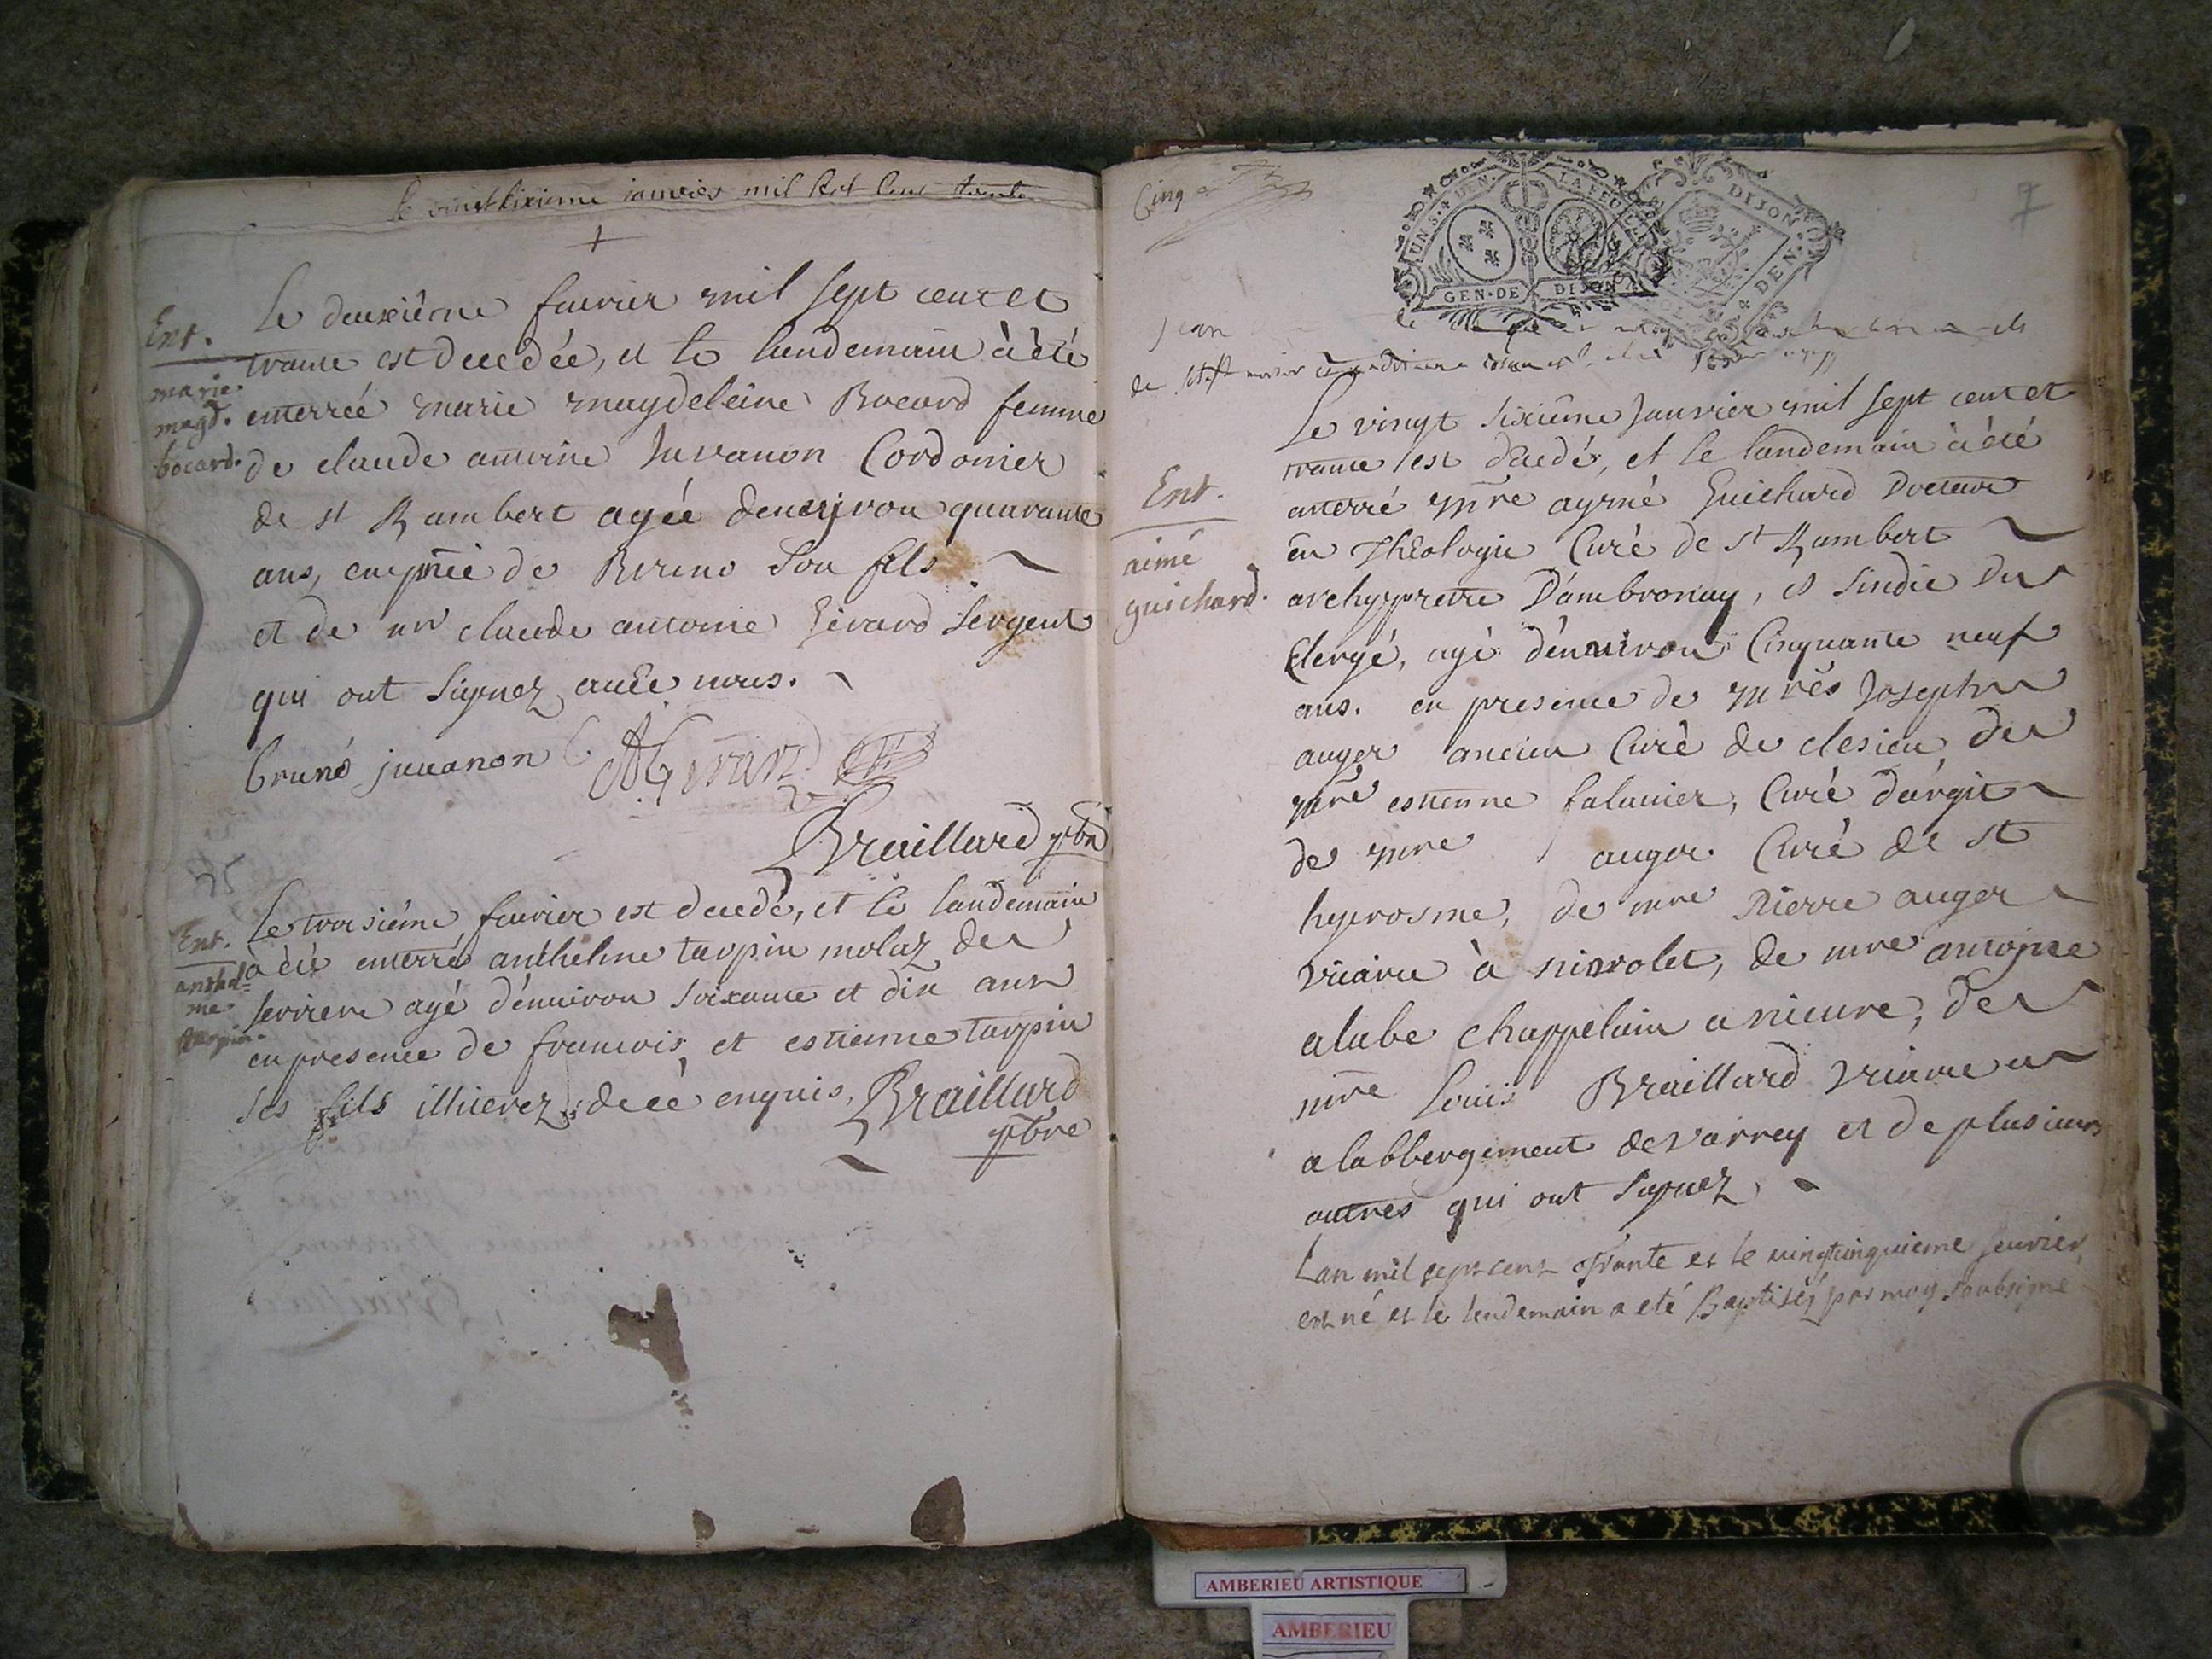 le vingt sixieme janvier mil sept cent trente
Ent.
marie
magd.
bocard.
Le deuxiême feuvrier mil sept cent et
trante est decedée, et le landemain à été
enterréé marie magdeleine Bocard femme
de claude antoine Juvanon Cordonier
de st Rambert agéé denvyron quarante
ans, en pñce de Bruno Son fils
et de mr claude antoine Gérard Sergent
qui ont Signez avec nous.
bruno juuanon CAGerard
Braillard pbr̃e
Ent.
anthel
me
tarpin.
Le troisiéme feuvrier est decedé, et le landemain
à été enterré anthelme tarpin molaz de
serriere agé d'environ soixante et dix ans
en presence de francois et estienne tarpin
ses fils illiterez de cé enquis, Braillard
pbre
Cinq
7
UN.S.4.DEN. LA FEUILLE
GEN.DE DIJON
DIJON
4 DEN.
Jean
de
Ent.
aimé
guichard.
Le vingt sixiême Janvier mil sept cent et
trante est décédé, et le landemain à été
anterré mre aymé Guichard Docteur
en Théologie Curé de st Rambert
archyprettre D'ambronay, et Sindic Du
Clergé, agé d'énviron Cinquante neuf
ans. en presence de mrés Joseph
auger ancien Curé de clesieu de
mre estienne falavier, Curé d'argit
de mre auger Curé de st
hyerosme, de mre Pierre auger
vicaire à nivolet, de mre antoine
alabe chappelain a nieure, de
mre Louis Braillard vicaire
a labbergement de varrey et de plusieurs
autres qui ont signez.
Lan mil sept cent trante et le vingtcinquieme feuvrier
est né et le lendemain a eté Baptisé par moy soubsigné
AMBERIEU ARTISTIQUE
AMBERIEU